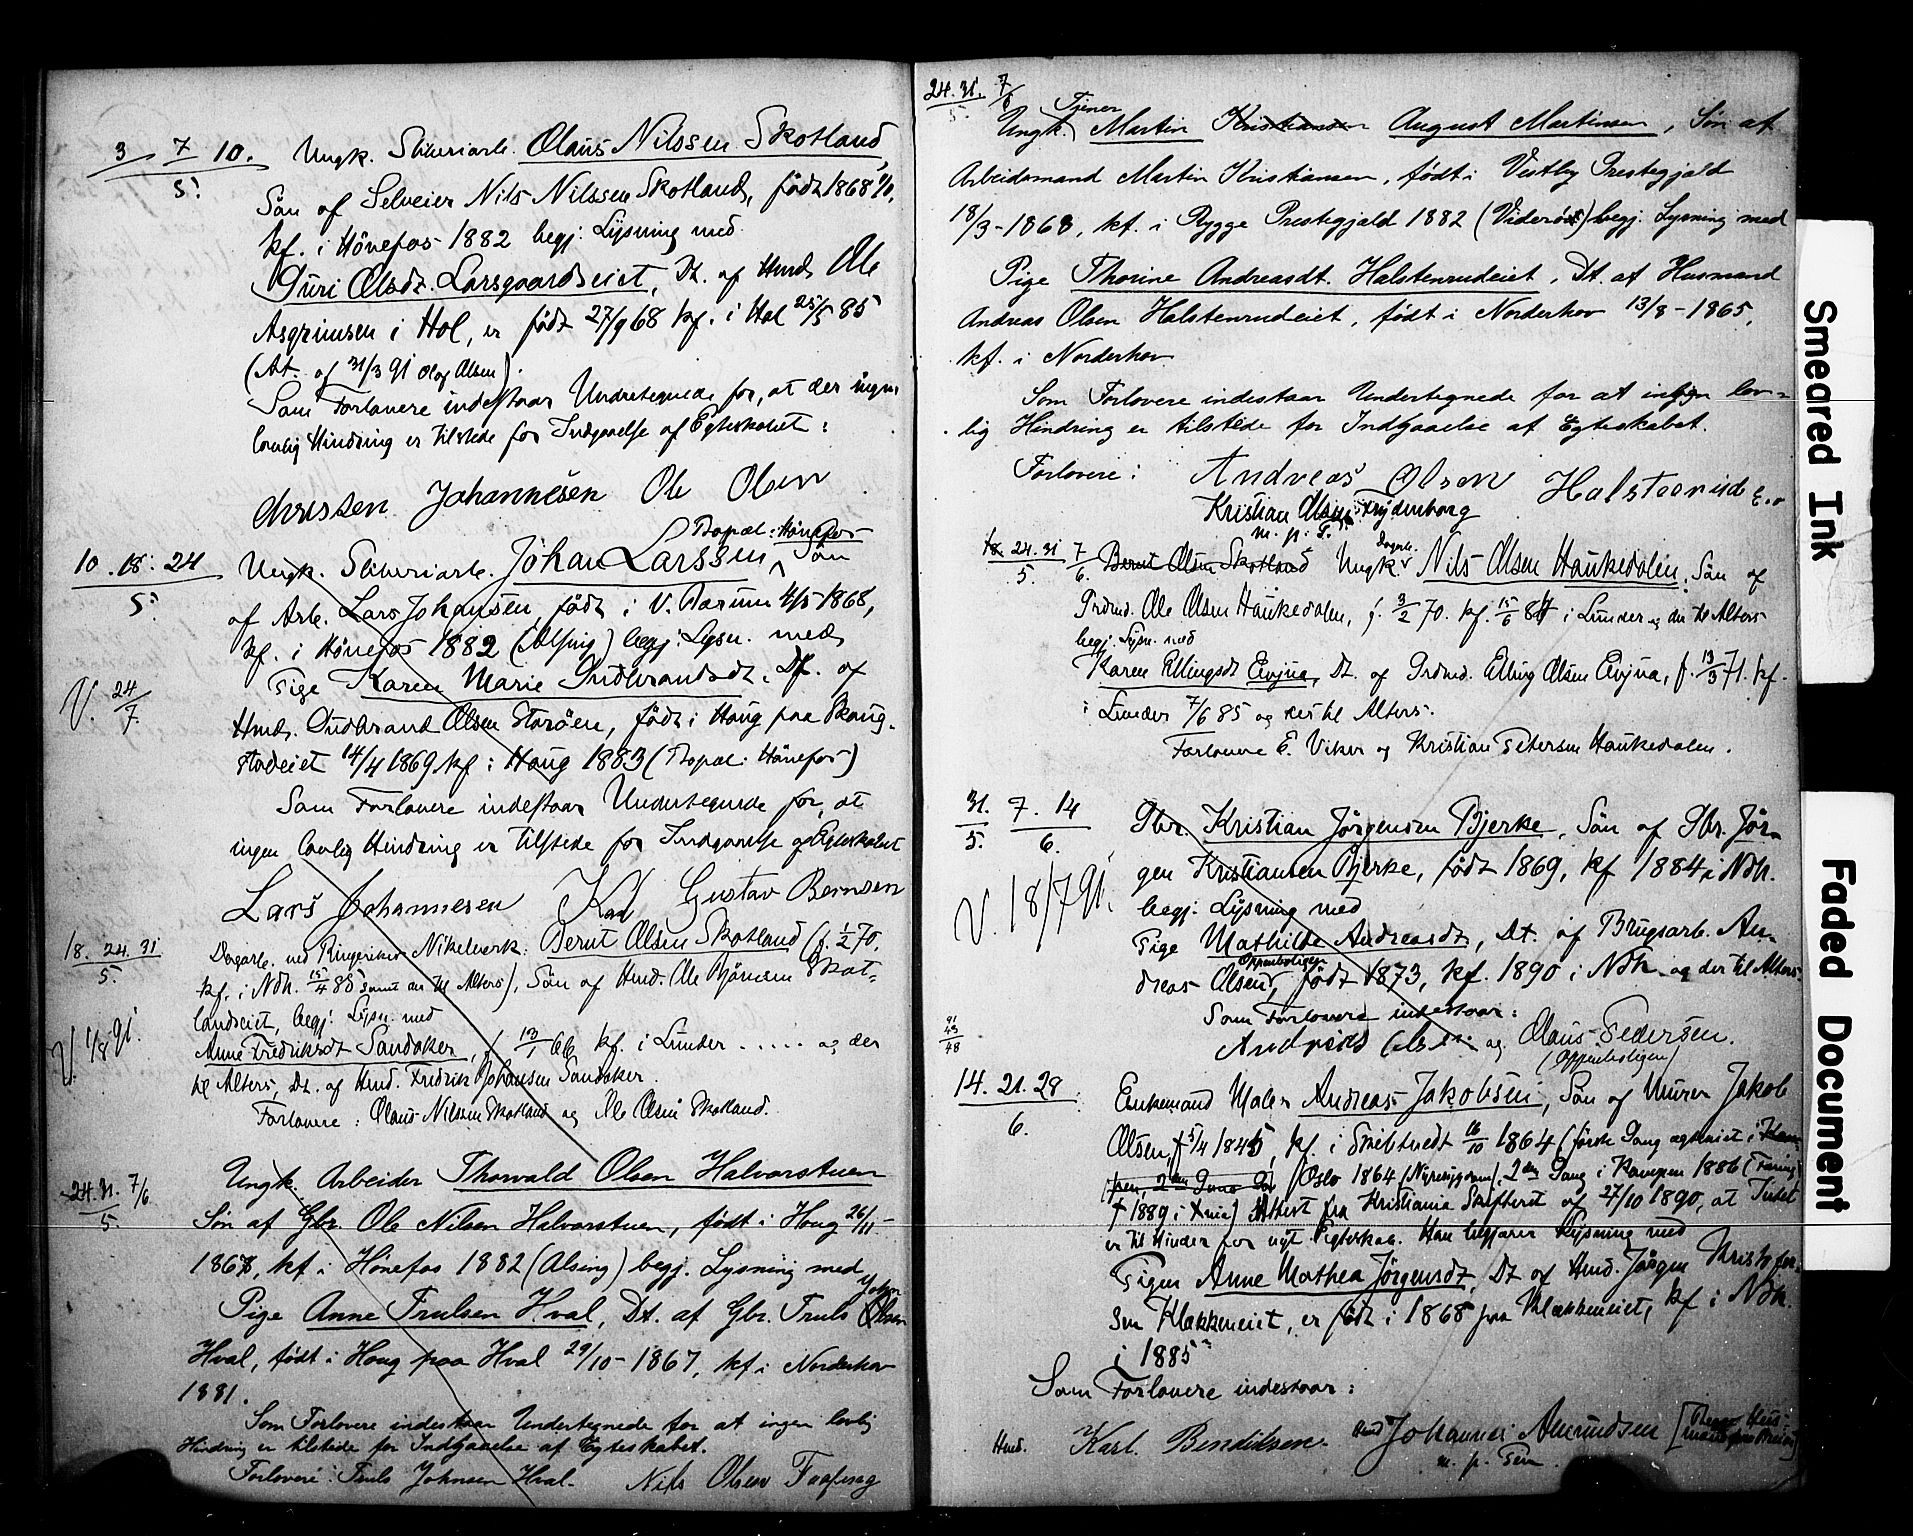 3 7 10.
5.
Ungk. Sliberiarb. Olaus Nilssen Skotland,
Søn af Selveier Nils Nilssen Skotland, født 1868
kf. i Hönefos 1882 begj. Lysning med
Guri Olsdt. Larsgaardseiet, Dt. af Hmd. Ole
Asgrimsen i Hol, er født 27/9 68 kf. i Hol 25/5 85
(At. af 31/3 91 Olaf Olsen).
Som Forlovere indestaar Undertegnede for, at der ingen
lovlig Hindring er tilstede for Indgaaelse af Egteskabet:
Christen Johannesen Ole Olsen
Bopæl: Hönefos
10. 18. 24
5.
Ungk. Sliberiarb. Johan Larssen, Søn
af Arb. Lars Johansen, født i V. Bærum 4/5 1868,
kf. i Hönefos 1882 (Alsing) begj. Lysn. med
V. 24/7.
Pige Karen Marie Gudbrandsdt. Dt. af
Hmd. Gudbrand Olsen Storöen, født i Haug paa Skaug-
stadeiet 14/4 1869 kf. i Haug 1883 (Bopæl: Hönefos)
Som Forlovere indestaar Undertegnede for, at
ingen lovlig Hindring er tilstede for Indgaaelse af Egteskabet
Lars Johannesen Karl Gustav Bernsen
18. 24. 31
5.
Dagarb. ved Ringerikes Nikelverk. Bernt Olsen Skotland (f. 1/2 70,
kf. i Ndh. 15/4 85 samt der til Alters), Søn af Hmd. Ole Björnsen Skot-
landseiet, begj. Lysn. med
V. 1/8 91.
Anne Fredriksdt Sandaker, f. 13/1 66 kf. i Lunder ..... og der
til Alters, Dt. af Hmd. Fredrik Johansen Sandaker.
Forlovere: Olaus Nilssen Skotland og Ole Olsen Skotland.
24. 31. 7/6.
5
Ungk. Arbeider Thorvald Olsen Halvorstuen
Søn af Gbr. Ole Nilsen Halvorstuen, født i Haug 26/11-
1867, kf. i Hönefos 1882 (Alsing) begj. Lysning med
Pige Anne Trulsen Hval, Dt. af Gbr. Truls Johns Olsen
Hval, født i Haug paa Hval 29/10- 1867, kf. i Norderhov
1881.
Som Forlovere indestaar Undertegnede for at ingen lovlig
Hindring er tilstede for Indgaaelse af Egteskabet.
Forlovere: Truls Johnsen Hval. Nils Olsen
24. 31. 7/6
5.
Tjener
Ungk. Martin Kristiansen August Martinsen, Søn af
Arbeidsmand Martin Kristiansen, født i Vestby Prestegjeld
18/3-1868, kf. i Rygge Prestegjeld 1882 (Viderøs) begj. Lysning med
Pige Thorine Andreasdt. Halstenrudeiet, Dt. af Husmand
Andreas Olsen Halstenrudeiet, født i Norderhov 13/8-1865,
kf. i Norderhov
Som Forlovere indestaar Undertegnede for at ingen lov-
lig Hindring er tilstede for Indgaaelse af Egteskabet.
Forlovere: Andreas Olsen Halstenrud
Kristian Olsen Frydenborg
m. p. P.
18. 24. 31 7
5. 6.
Bernt Olsen Skotland Ungk. Dagarb. Nils Olsen Haukedalen, Søn af
Grdmd. Ole Olsen Haukedalen, f. 3/2 70. kf. 15/6 84 i Lunder og der til Alters
begj. Lysn. med
Karen Ellingsdt Eivjua, Dt. af Grdmd. Elling Olsen Eivjua, f. 13/3 71. kf.
i Lunder 7/6 85 og der til Alters.
Forlovere E. Viker og Kristian Petersen Haukedalen.
31. 7. 14
5. 6.
Gbr. Kristian Jörgensen Bjerke, Søn af Gbr. Jör-
gen Kristiansen Bjerke, født 1869, kf 1884 i Ndh.
begj. Lysning med
V. 18/7 91.
Pige Mathilde Andreasdt, Dt. af Brugsarb. An-
dreas Olsen Oppenboligen, født 1873, kf. 1890 i Ndh. og der til Alters.
Som Forlovere indestaar:
91
43
48
Andreas Olsen og Olaus Pedersen.
(Oppenboligen)
14. 21. 28
6.
Enkemand Maler Andreas Jakobsen, Søn af Murer Jakob
Olsen, f 5/4 1845, kf. i Skibtvedt 16/10 1864 (förste Gang ægteviet i Kam-
pen, 2den Gang Oslo 1864 2den Gang i Kampen 1886
† 1889 i Xnia) Attest fra Kristiania Skifteret af 27/10 1890, at Intet
er til Hinder for nyt Egteskab. Han begjærer Lysning med
Pigen Anne Mathea Jörgensdt, Dt af Hmd. Jörgen Kristoffer-
sen Klækkeneiet, er født i 1868 paa Klækkeneiet, kf. i Ndh.
i 1885
Som Forlovere indestaar:
Hmd. Karl Bendiksen. Hmd Johannes Amundsen
m. p. Pen.
Smeared Ink
Faded Document